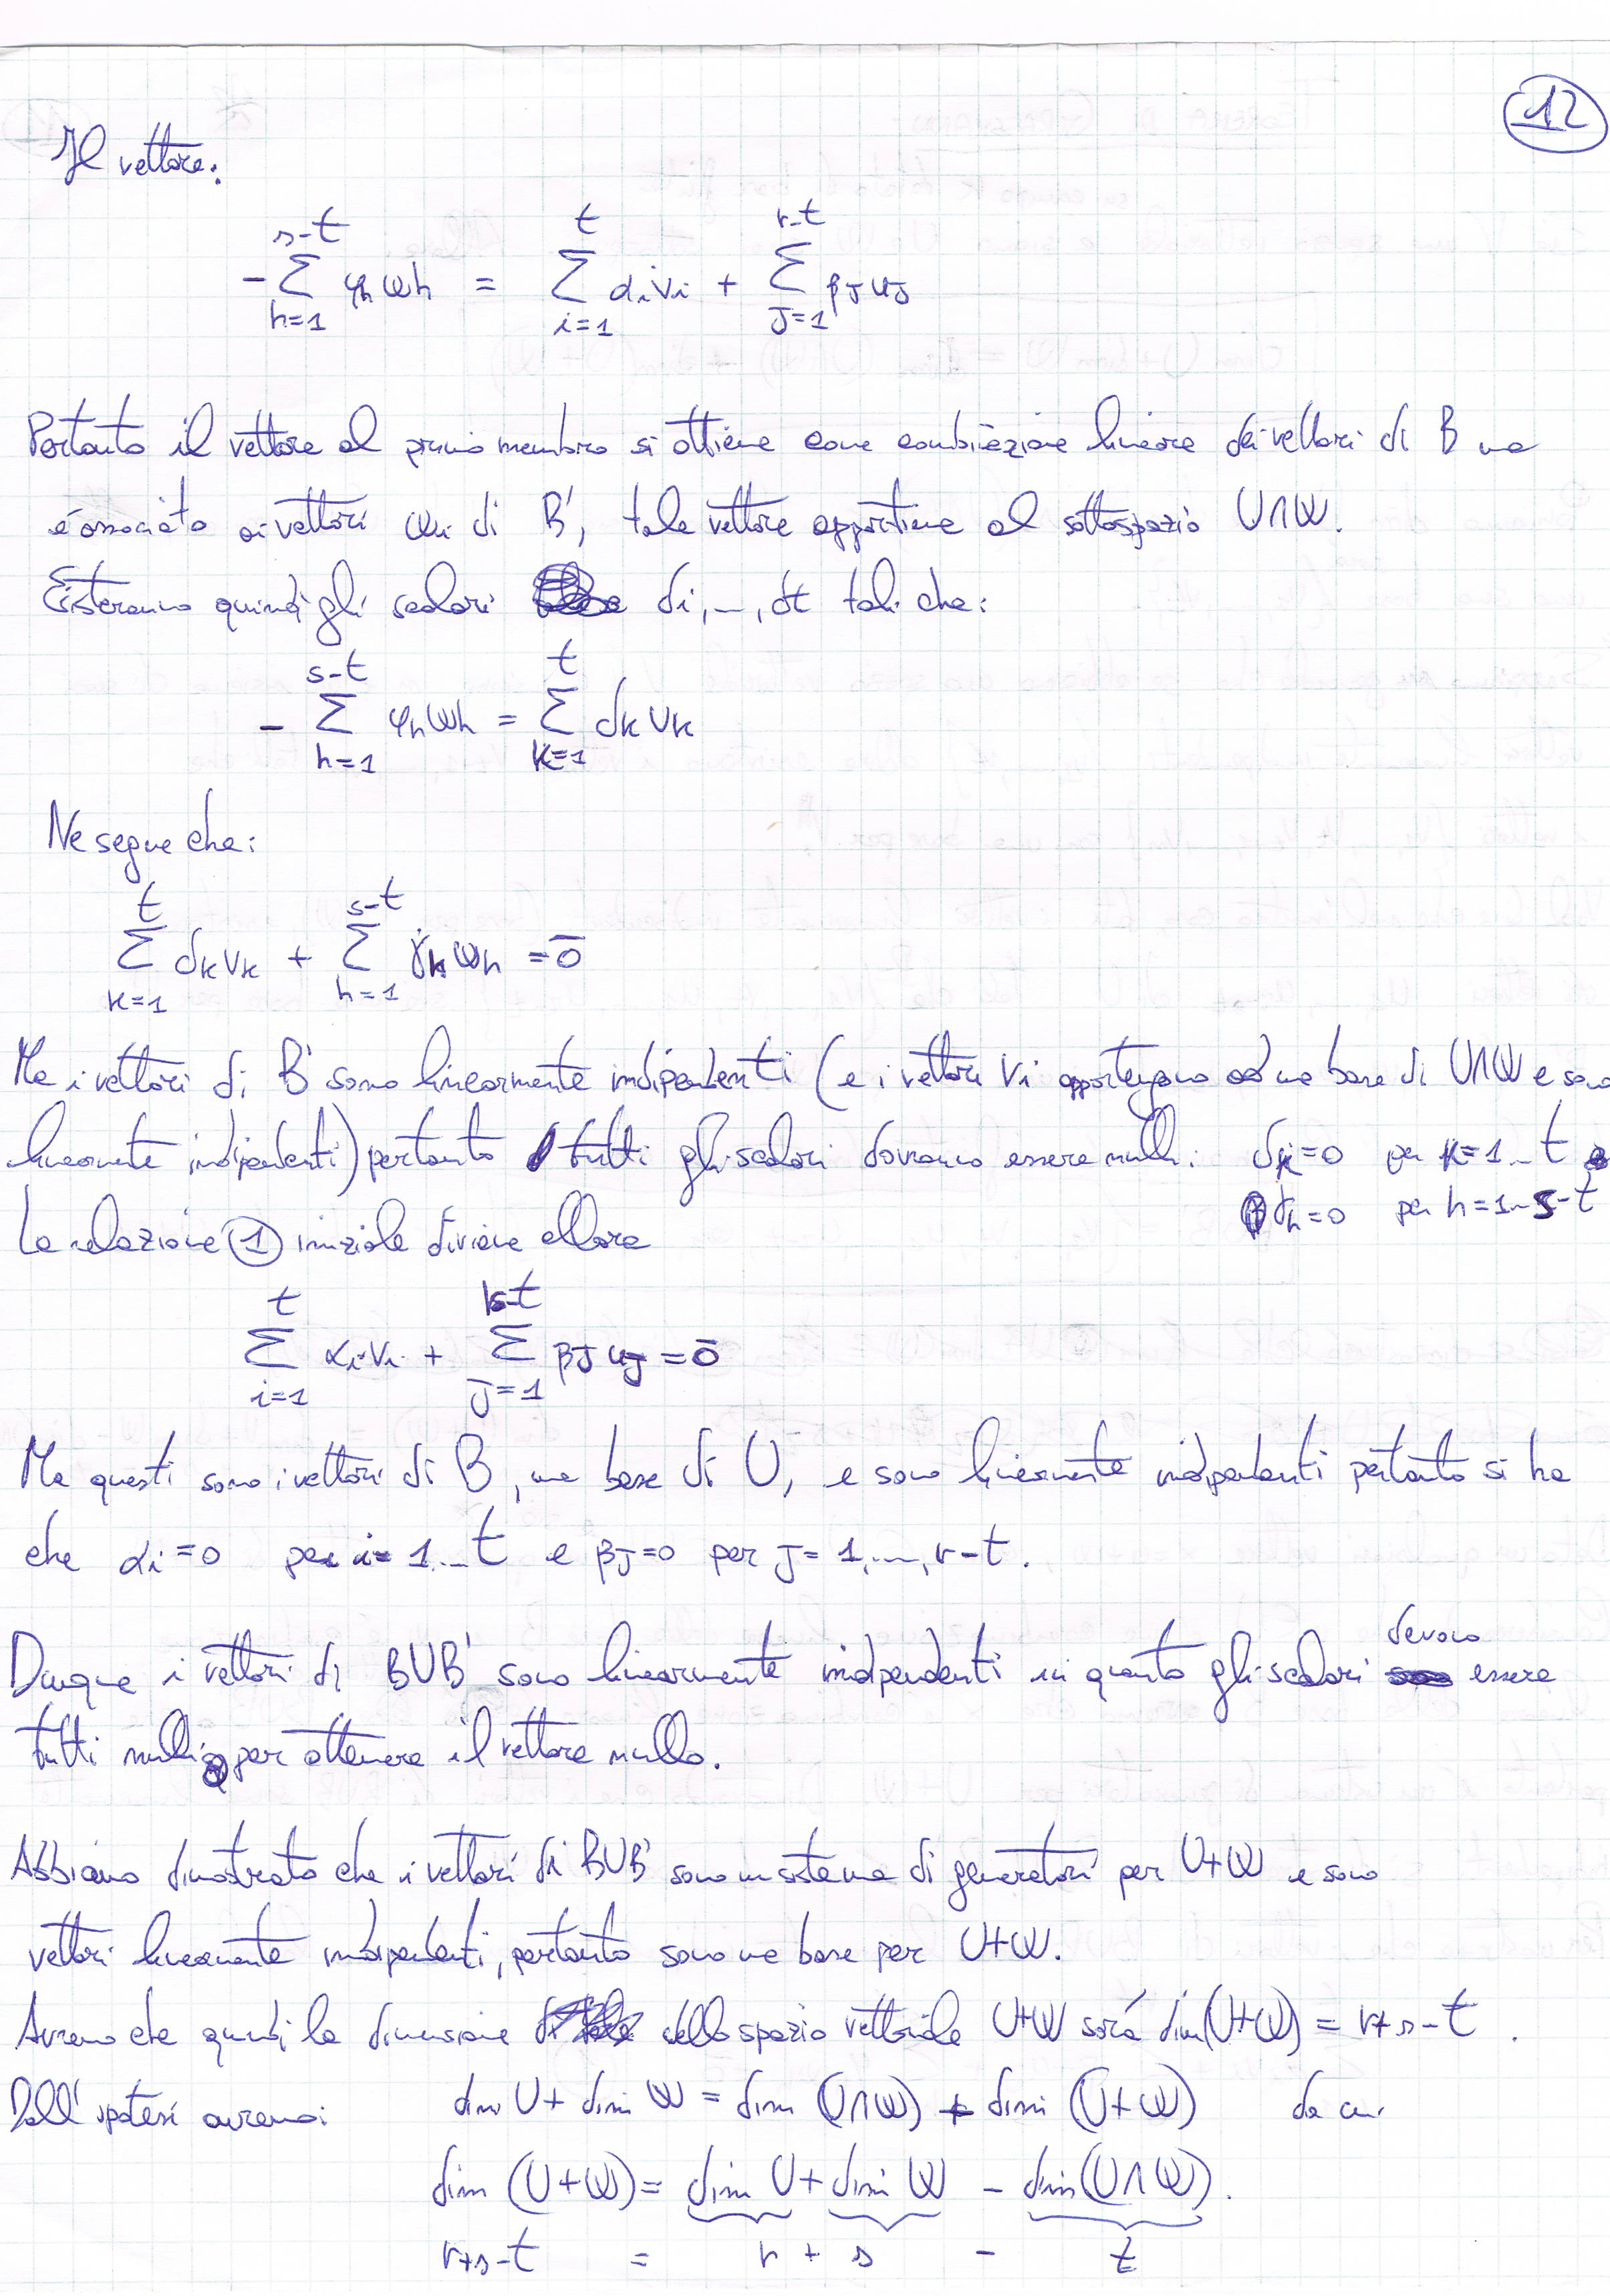 12
Il vettore:
- \sum_{h=1}^{s-t} φh ωh = \sum_{i=1}^{t} αi vi + \sum_{J=1}^{r-t} βJ uJ
Pertanto il vettore al primo membro si ottiene come combinazione lineare dei vettori di B ma
è associato ai vettori ωi di B', tale vettore appartiene al sottospazio U∩W.
Esisteranno quindi gli scalari δi, ..., δt tali che:
- \sum_{h=1}^{s-t} φh ωh = \sum_{k=1}^{t} δk vk
Ne segue che:
\sum_{k=1}^{t} δk vk + \sum_{h=1}^{s-t} γh ωh = \bar{0}
Ma i vettori di B' sono linearmente indipendenti (e i vettori vi appartengono ad una base di U∩W e sono
linearmente indipendenti) pertanto tutti gli scalari dovranno essere nulli: δk=0 per k=1...t
γh=0 per h=1...s-t
La relazione (1) iniziale diviene allora
\sum_{i=1}^{t} αi vi + \sum_{J=1}^{r-t} βJ uJ = \bar{0}
Ma questi sono i vettori di B, una base di U, e sono linearmente indipendenti pertanto si ha
che αi=0 per i=1...t e βJ=0 per J=1,...,r-t.
Dunque i vettori di B∪B' sono linearmente indipendenti in quanto gli scalari devono essere
tutti nulli per ottenere il vettore nullo.
Abbiamo dimostrato che i vettori di B∪B' sono un sistema di generatori per U+W e sono
vettori linearmente indipendenti, pertanto sono una base per U+W.
Avremo che quindi la dimensione dello spazio vettoriale U+W sarà dim(U+W) = r+s-t.
Dall'ipotesi avremo: dim U + dim W = dim (U∩W) + dim (U+W) da cui
dim (U+W) = dim U + dim W - dim(U∩W).
r+s-t = r + s - t